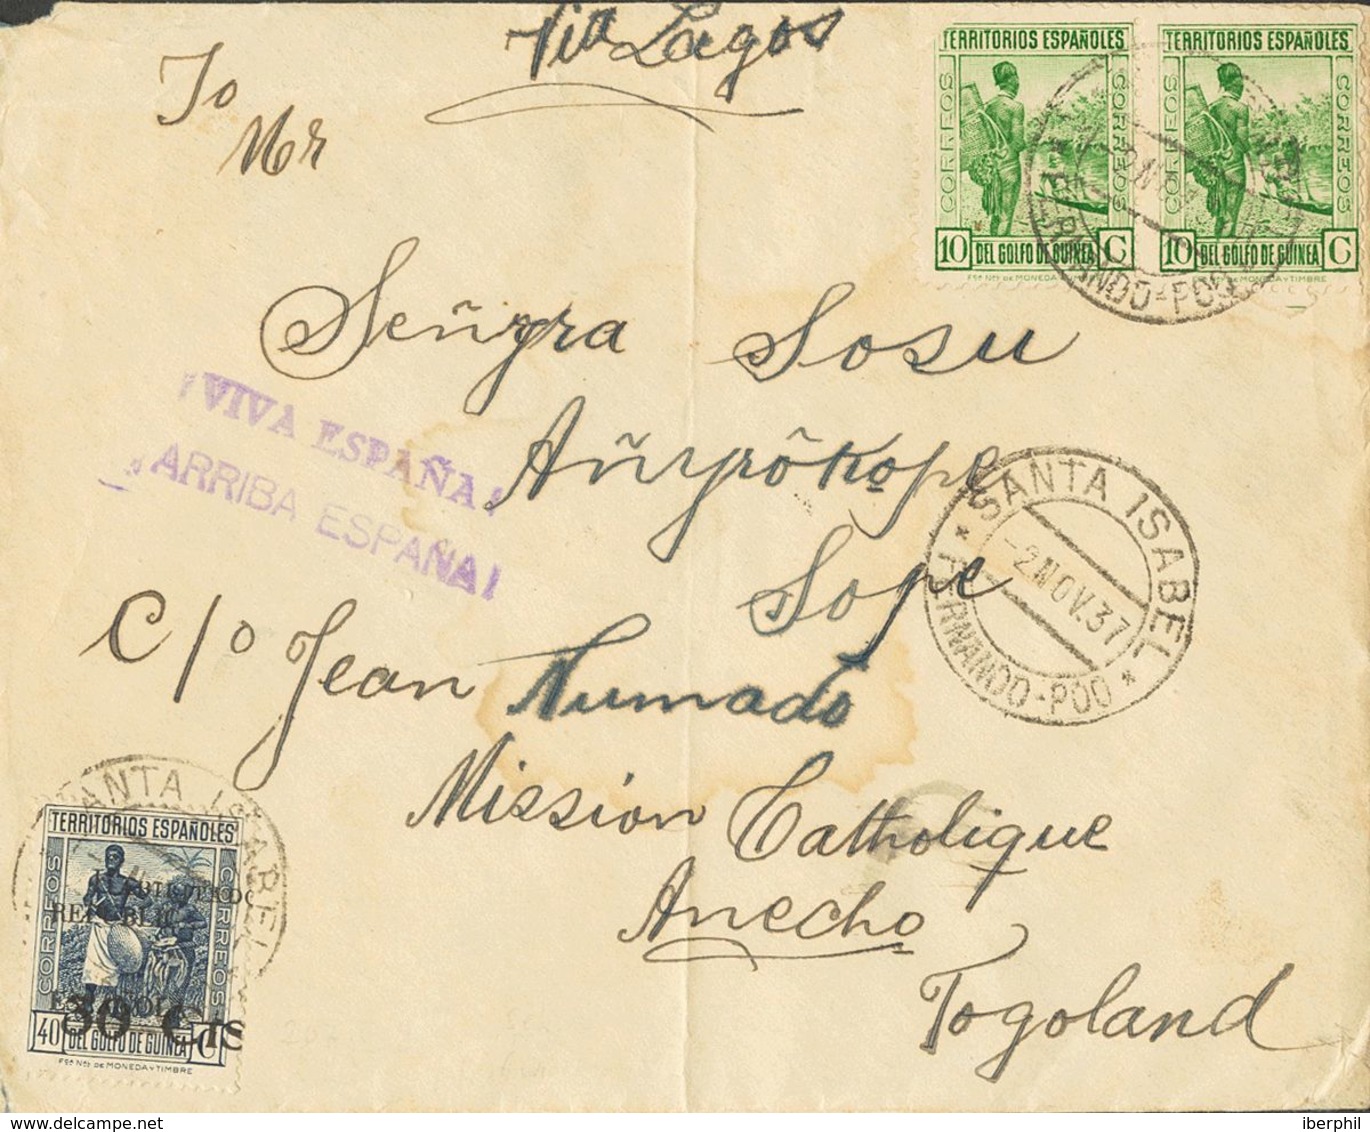 Via Lagos
To
Mr
Señyra Sosu
Añyrôkope
Sope
C/o Jean Kumado
Mission Catholique
Anecho
Togoland
¡VIVA ESPAÑA!
¡ARRIBA ESPAÑA!
TERRITORIOS ESPAÑOLES
CORREOS CORREOS
10 DEL GOLFO DE GUINEA C
Fca Nal DE MONEDA Y TIMBRE
TERRITORIOS ESPAÑOLES
CORREOS CORREOS
10 DEL GOLFO DE GUINEA C
Fca Nal DE MONEDA Y TIMBRE
FERNANDO-POO
* SANTA ISABEL *
-2 NOV. 37
FERNANDO-POO
SANTA ISABEL
TERRITORIOS ESPAÑOLES
CORREOS CORREOS
30 CTS
40 DEL GOLFO DE GUINEA C
Fca Nal DE MONEDA Y TIMBRE
iberphil